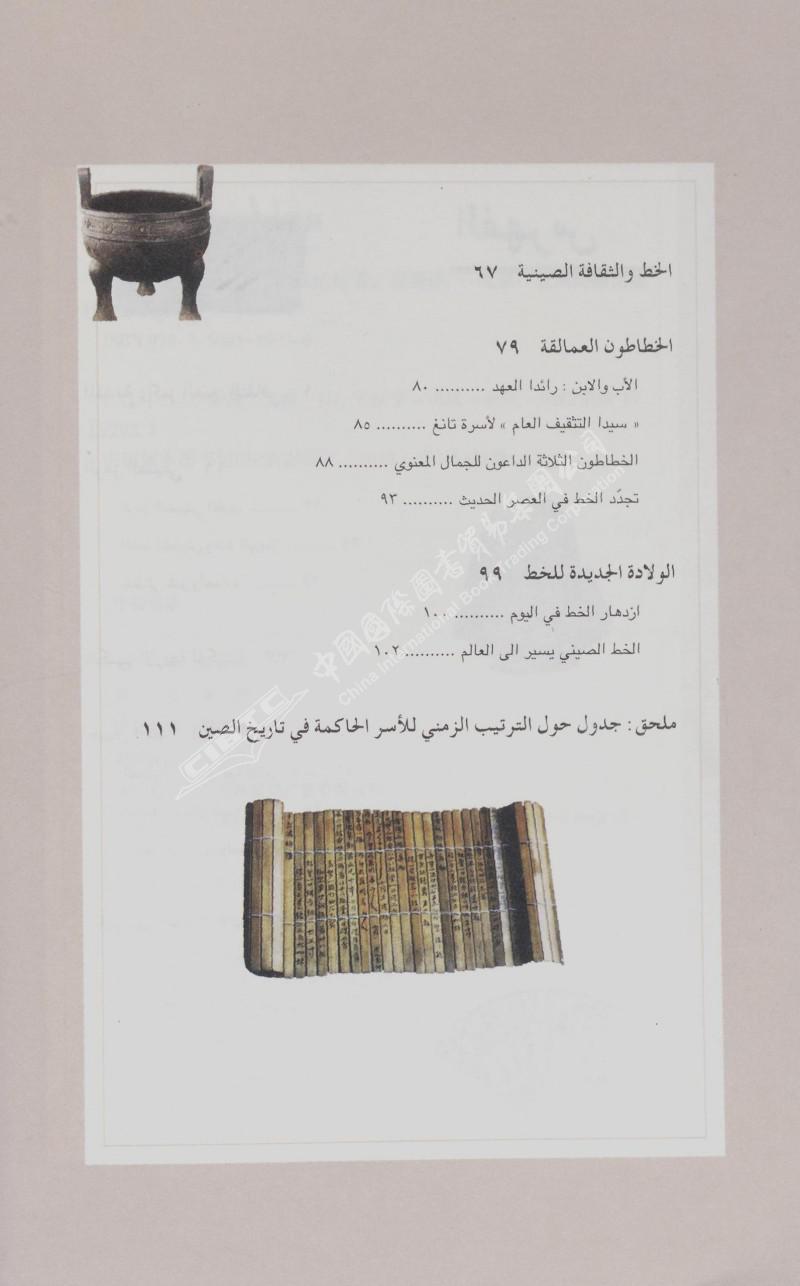 الخط والثقافة الصينية ٦٧
الخطاطون العمالقة ٧٩
الأب والابن : رائدا العهد .......... ٨٠
« سيدا التثقيف العام » لأسرة تانغ .......... ٨٥
الخطاطون الثلاثة الداعون للجمال المعنوي .......... ٨٨
تجدّد الخط في العصر الحديث .......... ٩٣
الولادة الجديدة للخط ٩٩
ازدهار الخط في اليوم .......... ١٠٠
الخط الصيني يسير الى العالم .......... ١٠٢
ملحق : جدول حول الترتيب الزمني للأسر الحاكمة في تاريخ الصين ١١١
中國國際圖書貿易集團公司
China International Book Trading Corporation
CIBTC